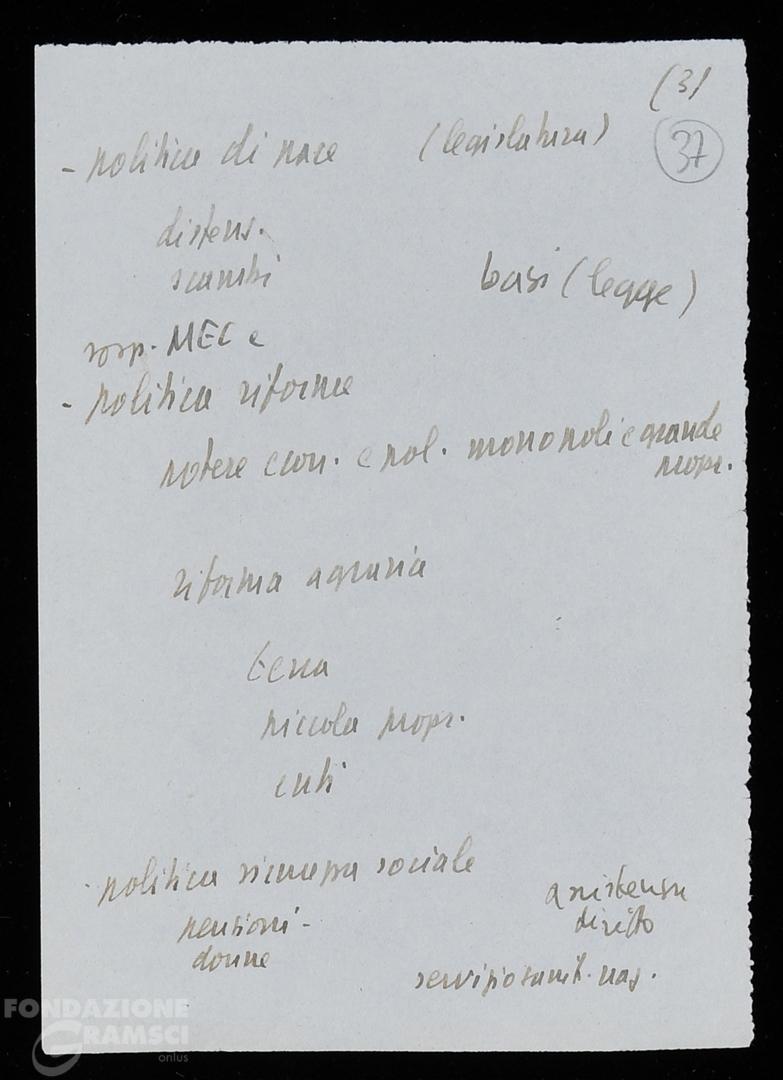 (3)
37
- politica di pace (legislatura)
distens.
scambi
basi (legge)
sosp. MEC e
- politica riforme
potere econ. e pol. monopoli e grande
propr.
riforma agraria
terra
piccola propr.
enti
- politica sicurezza sociale
assistenza
diritto
pensioni -
donne
servizio sanit. naz.
FONDAZIONE
GRAMSCI
onlus